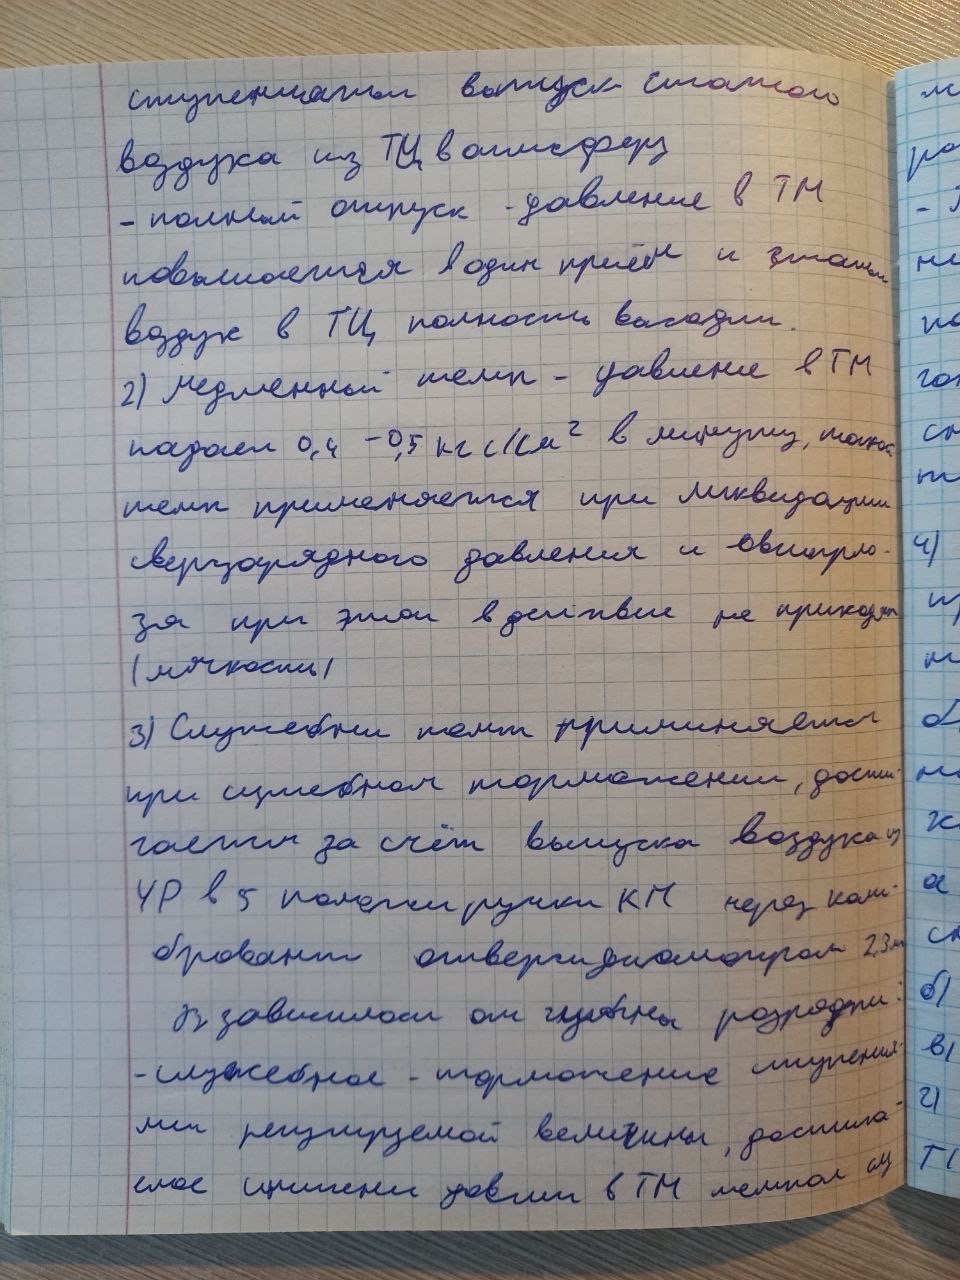 ступенчатый выпуск сжатого
воздуха из ТЦ в атмосферу
- полный отпуск - давление в ТМ
повышается в один приём и сжатый
воздух в ТЦ полность выходит.
2) Медленный темп - давление в ТМ
падает 0,4 - 0,5 кгс/см² в минуту, такой
темп применяется при ликвидации
сверхзарядного давления и автотормо-
за при этом в действие не приходят
(мягкость)
3) Служебный темп применяется
при служебном торможении, дости-
гается за счёт выпуска воздуха из
УР в 5 положении ручки КМ через кали-
брованное отверстие диаметром 2,3 мм
В зависимости от глубины разрядки:
- служебное - торможение ступеня-
ми регулируемой величины, достига-
емое снижением давления в ТМ темпом сл
м
ра
-
ни
по
го
сн
т
4)
и
т
об
но
к
а
сн
б)
в)
г)